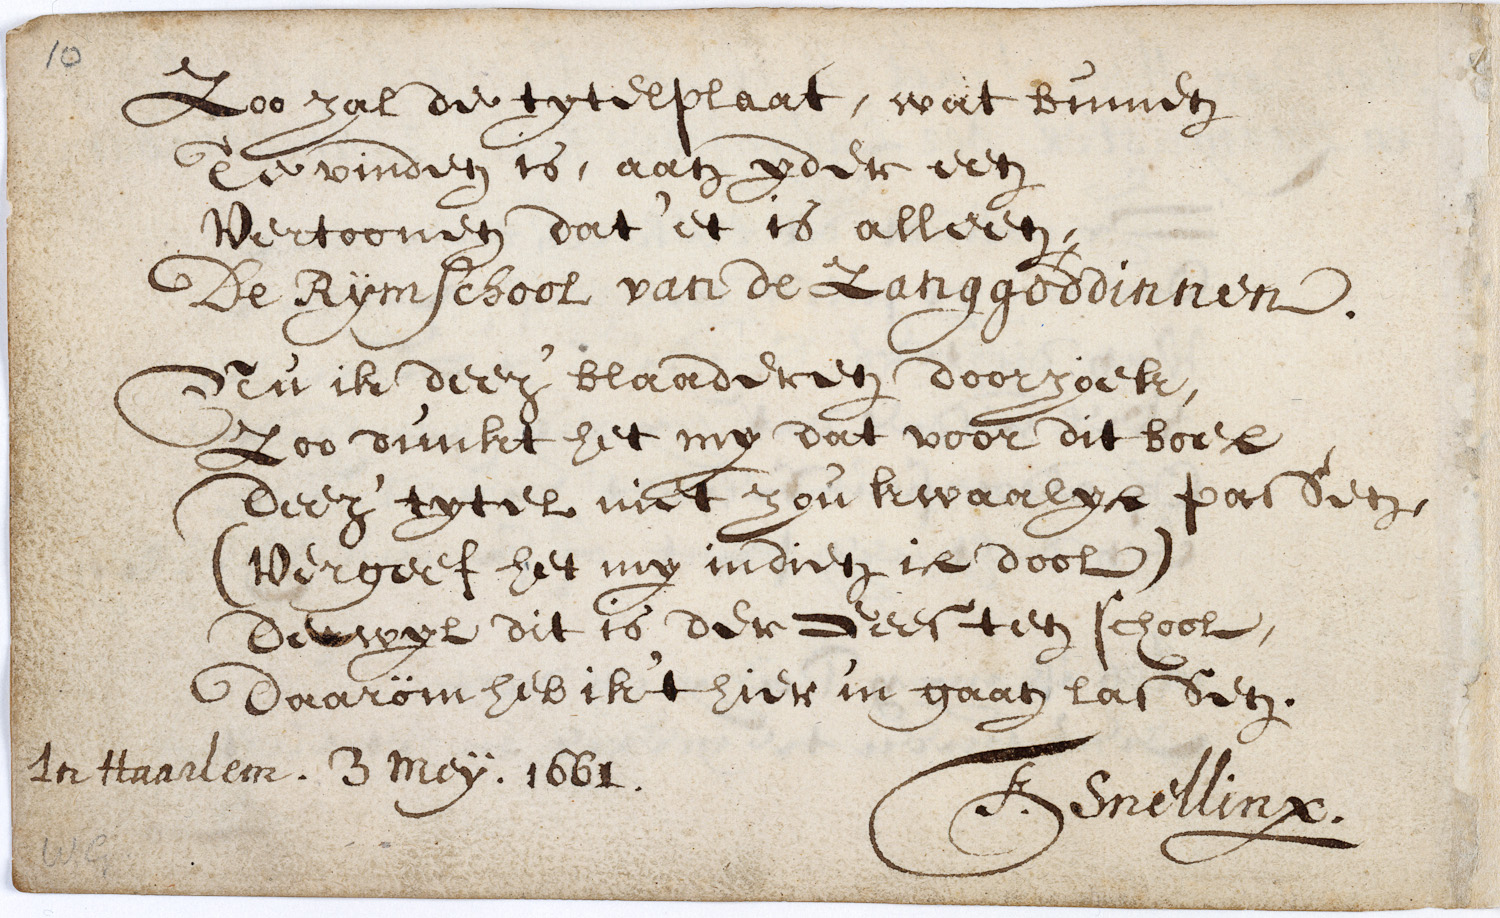 10
Zoo zal de tytelplaat, wat binnen
Te vinden is, aan yder een
Vertoonen dat 'et is alleen,
De Rymschool van de Zanggoddinnen.
Nu ik deez' blaaderen doorzoek,
Zoo dunkt het my dat voor dit boek
Deez' tytel niet zou kwaalyk passen,
(Vergeef het my indien ik dool)
Dewyl dit is der Geesten school,
Daaröm heb ik 't hier in gaan lassen.
In Haarlem. 3 Mey. 1661.
F. Snellinx.